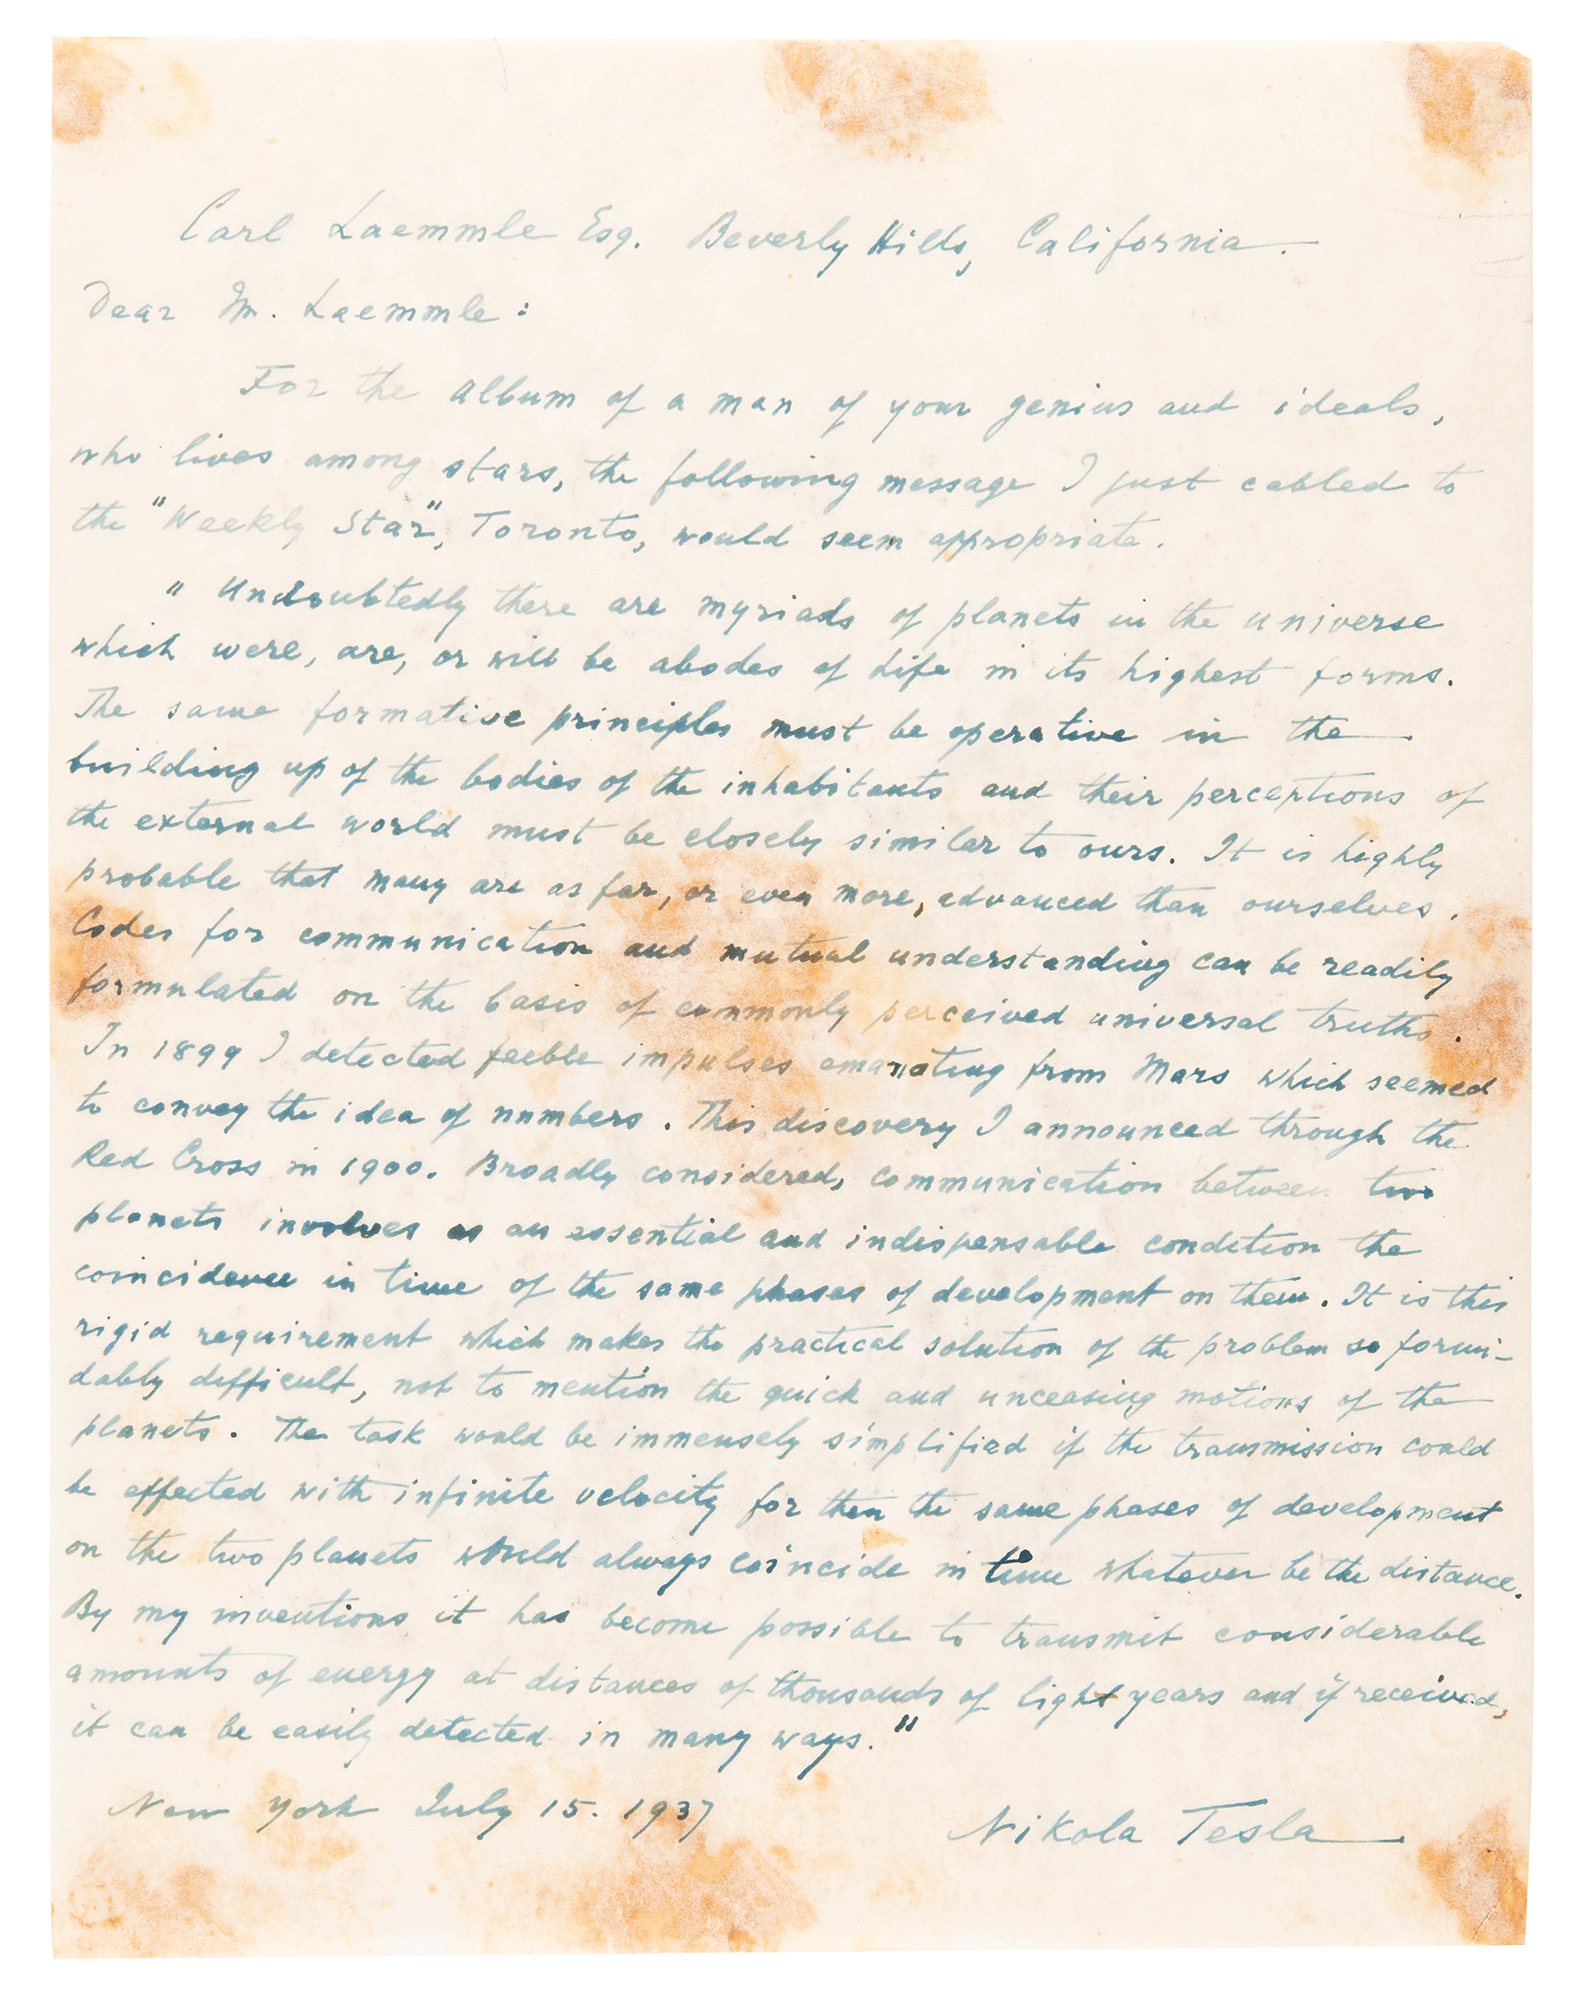 Carl Laemmle Esq. Beverly Hills, California.
Dear Mr. Laemmle:
For the album of a man of your genius and ideals,
who lives among stars, the following message I just cabled to
the "Weekly Star", Toronto, would seem appropriate.
" Undoubtedly there are myriads of planets in the universe
which were, are, or will be abodes of Life in its highest forms.
The same formative principles must be operative in the
building up of the bodies of the inhabitants and their perceptions of
the external world must be closely similar to ours. It is highly
probable that many are as far, or even more, advanced than ourselves.
Codes for communication and mutual understanding can be readily
formulated on the basis of commonly perceived universal truths.
In 1899 I detected feeble impulses emanating from Mars which seemed
to convey the idea of numbers. This discovery I announced through the
Red Cross in 1900. Broadly considered, communication between two
planets involves as an essential and indispensable condition the
coincidence in time of the same phases of development on them. It is this
rigid requirement which makes the practical solution of the problem so formi-
dably difficult, not to mention the quick and unceasing motions of the
planets. The task would be immensely simplified if the transmission could
be effected with infinite velocity for then the same phases of development
on the two planets would always coincide in time whatever be the distance.
By my inventions it has become possible to transmit considerable
amounts of energy at distances of thousands of light years and if received,
it can be easily detected in many ways."
New York July 15. 1937
Nikola Tesla